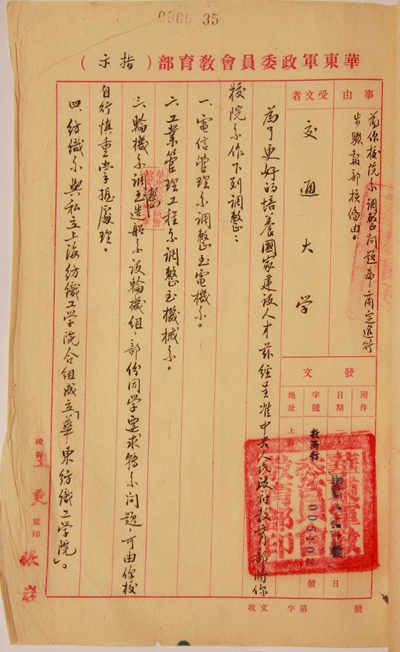 0000 35
華東軍政委員會教育部（指示）
事由
為你校院系調整問題希商定進行
步驟報部核備由。
受文者
交通大學
發文
附件
日期
字號
地址
上
教高行
006102
日
號
華東軍政
委員會
教育部印
收文 字第 號
為了更好的培養國家建設人才茲經呈准中央人民政府教育部將你
校院系作下列調整：
一、電信管理系調整至電機系。
二、工業管理工程系調整至機械系。
三、輪機系調整至造船系設輪機組，部份同學要求轉系問題，可由你校
自行慎重掌握處理。
四、紡織系與私立上海紡織工學院合組成立「華東紡織工學院」。
校對
監印